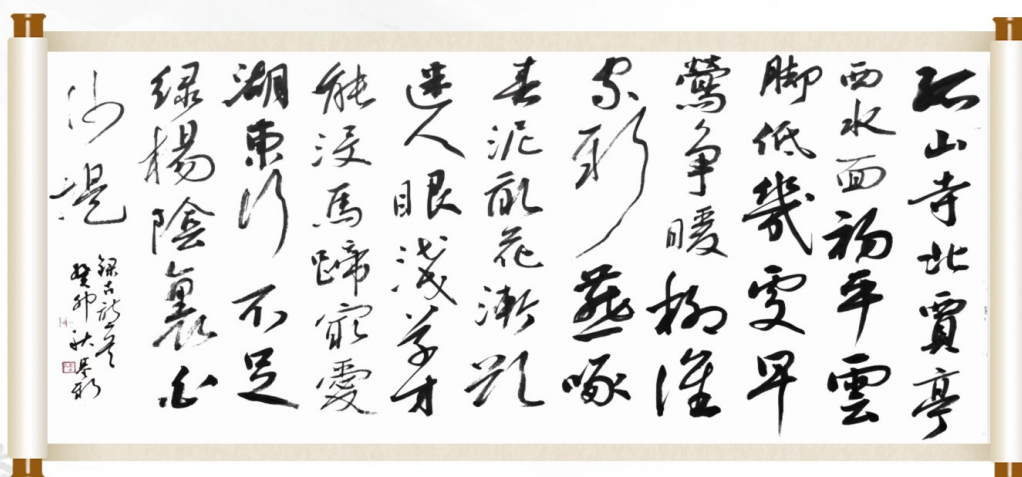 孤山寺北賈亭
西水面初平雲
脚低幾處早
鶯争暖樹誰
家新燕啄
春泥亂花漸欲
迷人眼淺草才
能没馬蹄最愛
湖東行不足
緑楊陰裏白
沙堤
録古詩一首
癸卯秋